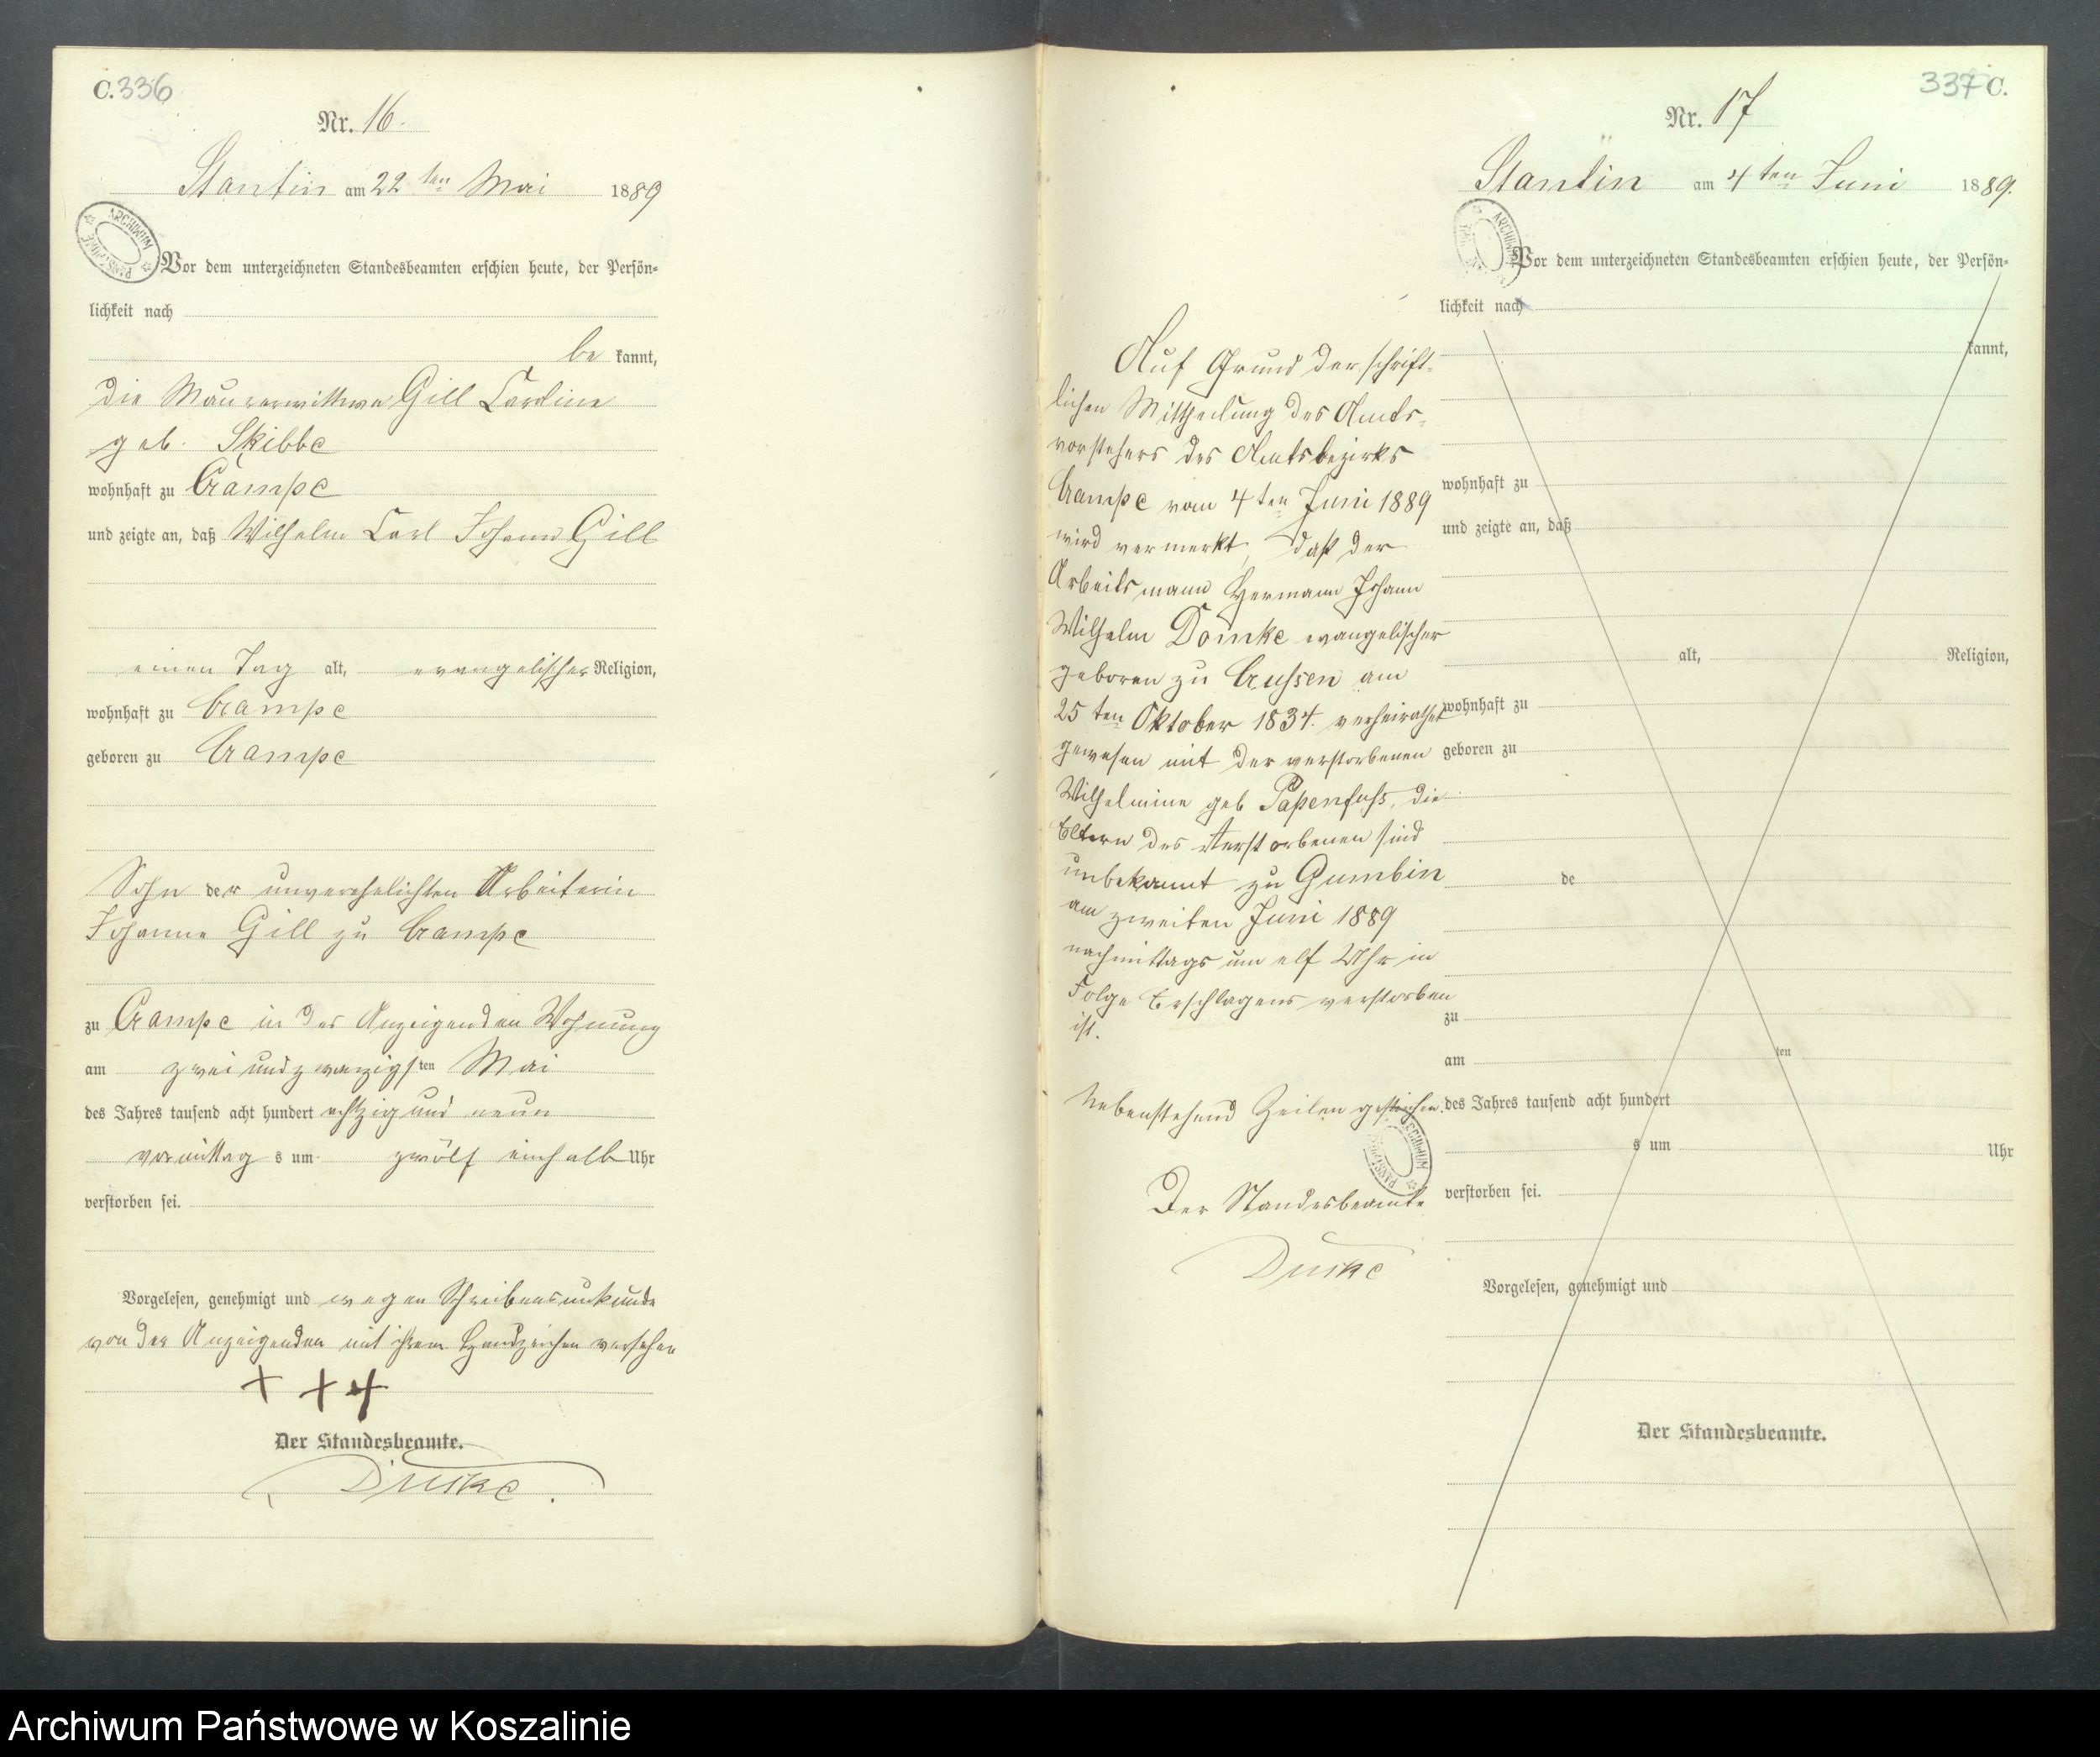 C. 336
Nr. 16.
Stantin am 22 ten Mai 1889
ARCHIWUM PAŃSTWOWE
Vor dem unterzeichneten Standesbeamten erschien heute, der Persön-
lichkeit nach
be kannt,
die Maurerwittwe Gill Caroline
geb. Skibbe
wohnhaft zu Crampe
und zeigte an, daß Wilhelm Carl Johann Gill
einen Tag alt, evangelischer Religion,
wohnhaft zu Crampe
geboren zu Crampe
Sohn der unverehelichten Arbeiterin
Johanne Gill zu Crampe
zu Crampe in der Anzeigenden Wohnung
am zwei und zwanzigsten Mai
des Jahres tausend acht hundert achtzig und neun
vormittag s um zwölf einhalb Uhr
verstorben sei.
Vorgelesen, genehmigt und wegen Schreibensunkunde
von der Anzeigenden mit ihrem Handzeichen versehen
+ + +
Der Standesbeamte.
337 C.
Nr. 17
Stantin am 4 ten Juni 1889.
Vor dem unterzeichneten Standesbeamten erschien heute, der Persön-
lichkeit nach
kannt,
wohnhaft zu
und zeigte an, daß
alt, Religion,
wohnhaft zu
geboren zu
de
zu
am ten
des Jahres tausend acht hundert
s um Uhr
verstorben sei.
Vorgelesen, genehmigt und
Der Standesbeamte.
Auf Grund der schrift-
lichen Mittheilung des Amts-
vorstehers des Amtsbezirks
Crampe vom 4 ten Juni 1889
wird vermerkt, daß der
Arbeitsmann Hermann Johann
Wilhelm Domke evangelischer
geboren zu Crussen am
25 ten Oktober 1834. verheirathet
gewesen mit der verstorbenen
Wilhelmine geb Papenfuß, die
Eltern des Verstorbenen sind
unbekannt zu Gumbin
am zweiten Juni 1889
nachmittags um elf Uhr in
Folge Erschlagens verstorben
ist.
Nebenstehend Zeilen gestrichen.
Der Standesbeamte
Archiwum Państwowe w Koszalinie